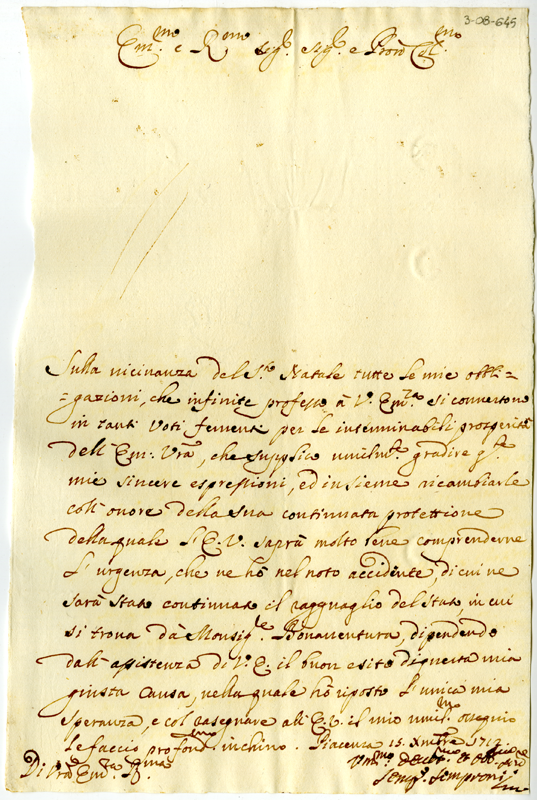 3-08-645
Em.mo e R.mo Sig.r Sig.r e Pron Col.mo
Sulla vicinanza del S.to Natale tutte le mie obbli=
=gazioni, che infinite professo à V. Em.za si convertono
in tanti voti ferventi per le interminabili prosperità
dell' Em. Vrã, che supplico umilm.e gradire q.te
mie sincere espressioni, ed insieme ricambiarle
coll' onore della sua continuata protettione
della quale l' E. V. saprà molto bene comprenderne
l' urgenza, che ne hò nel noto accidente, di cui ne
sarà stato continuato il ragguaglio del stato in cui
si trova dà Monsig.re Bonaventura, dipendendo
dall' assistenza di V. E. il buon esito di questa mia
giusta causa, nella quale hò riposto l' unica mia
speranza, e col rasegnare all' E. V. il mio umil.mo ossequio
le faccio profond.mo inchino. Piacenza 15. Xmbre 1712
Di Vrã Em.za R.ma
Um.mo Devot.mo et Obb.
Semp. Semproni